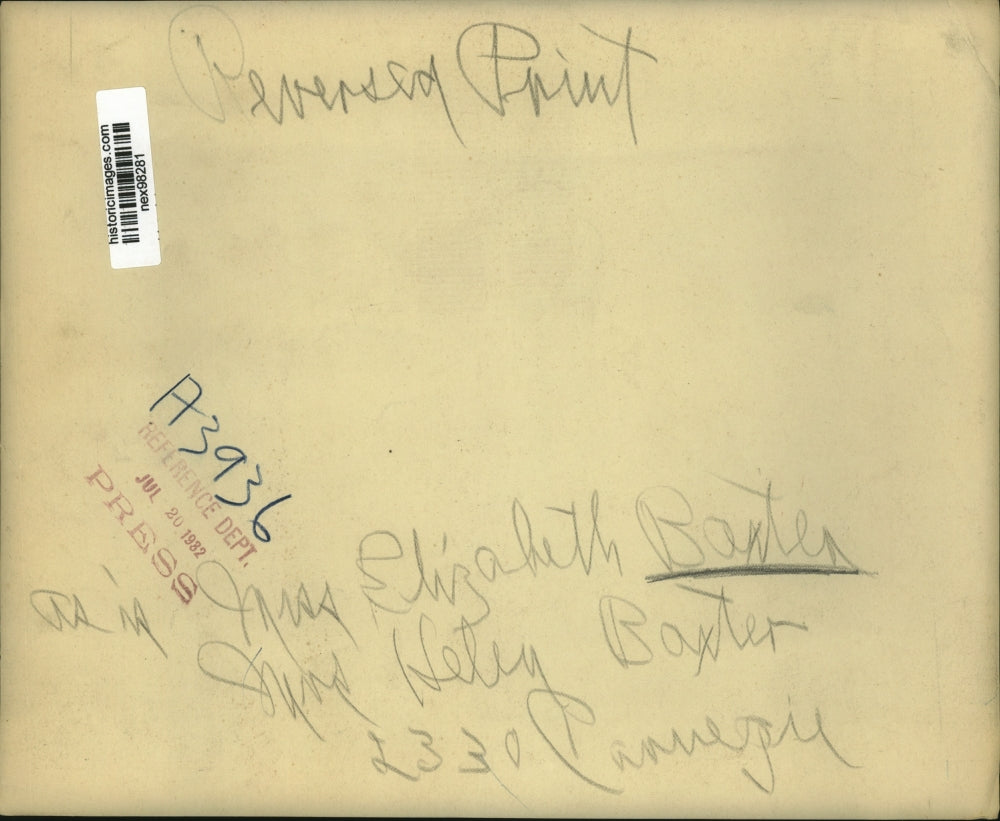 Reversed Print
historicimages.com
nex98281
A3936
REFERENCE DEPT.
JUL 20 1982
PRESS
as is Miss Elizabeth Baxter
Mrs Hetey Baxter
2330 Carnegie